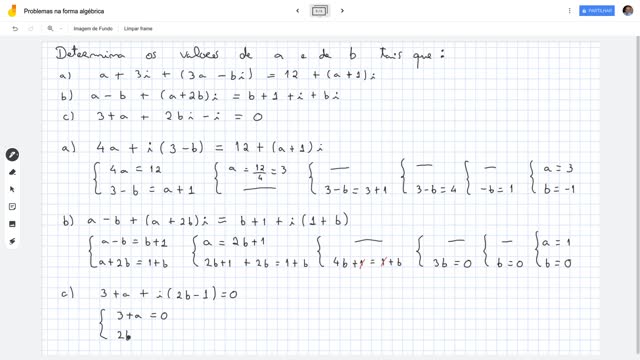 Problemas na forma algébrica
1/1
PARTILHAR
Imagem de Fundo
Limpar frame
Determina os valores de a e de b tais que:
a) a + 3i + (3a - bi) = 12 + (a+1)i
b) a - b + (a+2b)i = b + 1 + i + bi
c) 3 + a + 2bi - i = 0
a) 4a + i(3-b) = 12 + (a+1)i
{ 4a = 12 { a = 12/4 = 3 { — { — { — { a = 3
3 - b = a + 1 — 3-b = 3+1 3-b = 4 -b = 1 b = -1
b) a - b + (a + 2b)i = b+1 + i(1+b)
{ a - b = b+1 { a = 2b+1 { — { — { — { a = 1
a + 2b = 1+b 2b+1 + 2b = 1+b 4b+1 = 1+b 3b = 0 b = 0 b = 0
c) 3 + a + i(2b-1) = 0
{ 3 + a = 0
2b